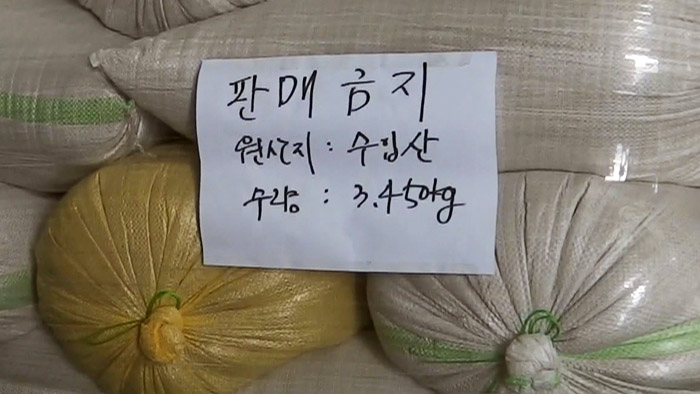 판매금지
원산지 : 수입산
수량 : 3.450kg